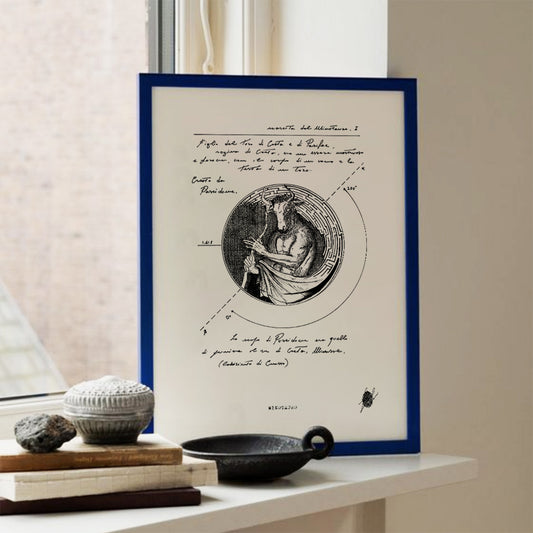 nascita del Minotauro. I
Figlio del Toro di Creta e di Pasifae,
regina di Creta, era un essere mostruoso
e feroce, con il corpo di un uomo e la
testa di un toro.
Creato da
Poseidone.
La colpa di Poseidone era quella
di punire il re di Creta, Minosse.
(Labirinto di Cnosso)